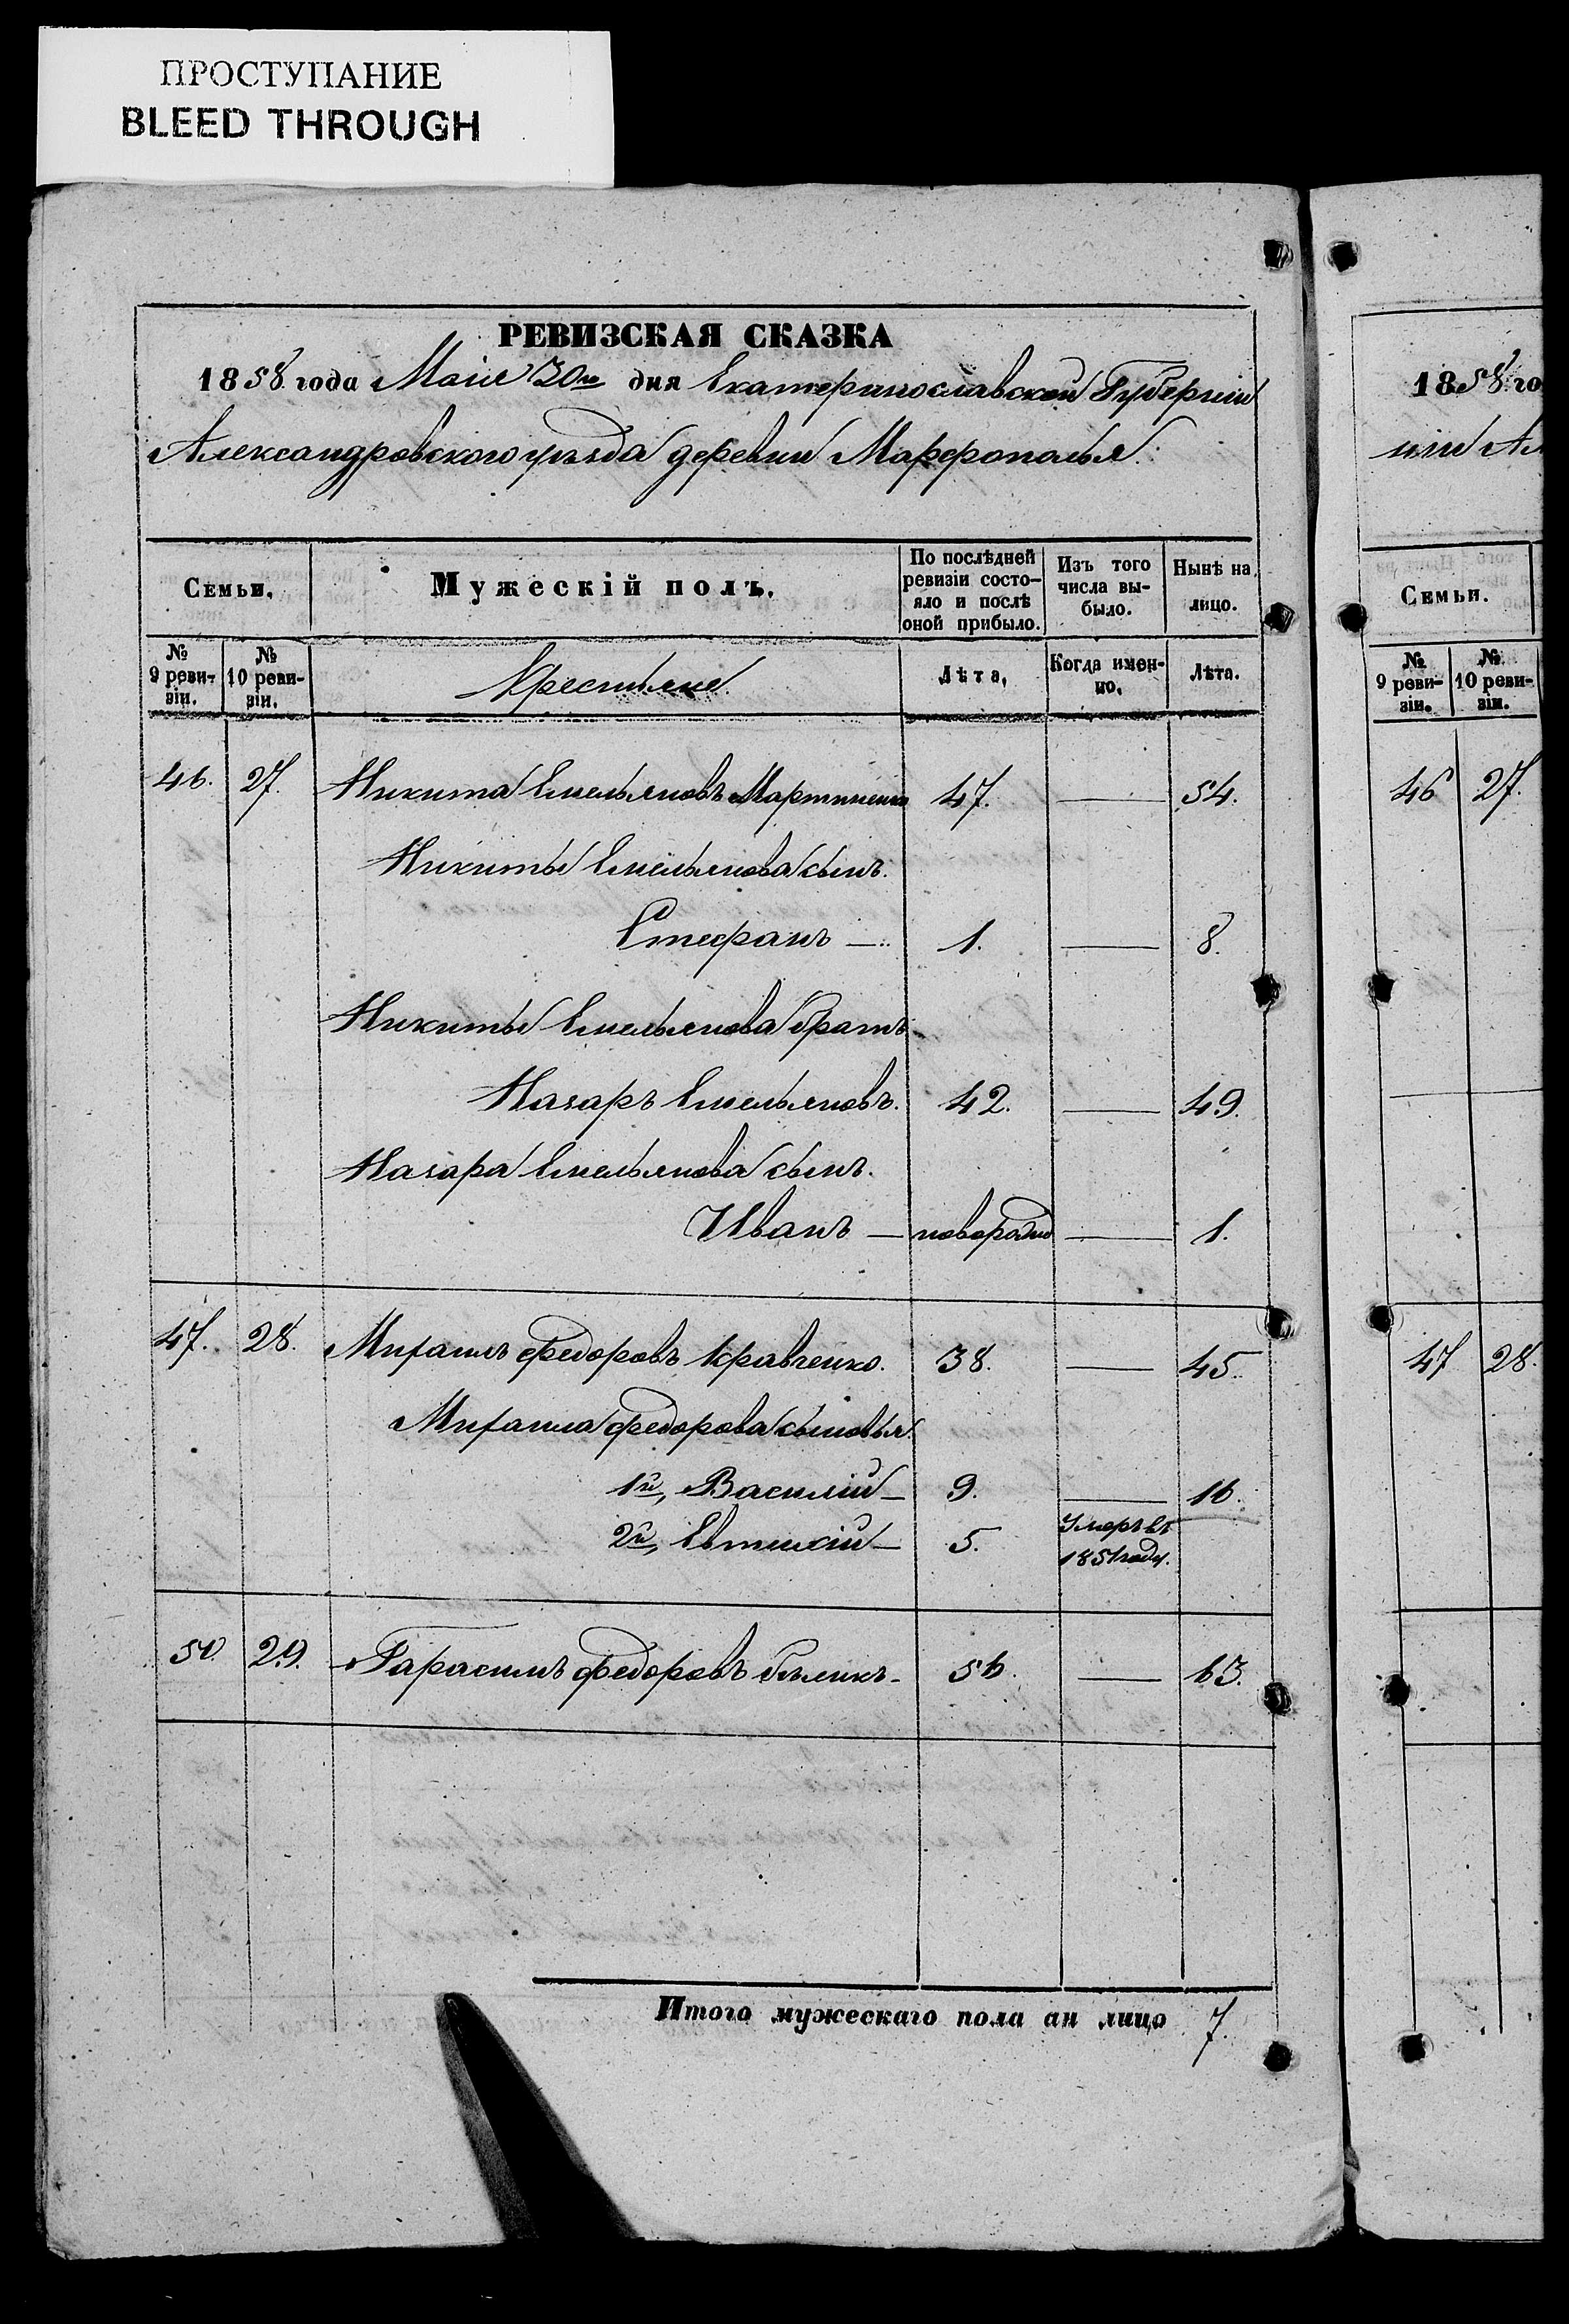 ПРОСТУПАНИЕ
BLEED THROUGH
РЕВИЗСКАЯ СКАЗКА
1858 года Маия 30го дня Екатеринославской Губернии
Александровского уѣзда деревни Марфополья.
Семьи.
Мужескій полъ.
По послѣдней ревизіи состо-
яло и послѣ
оной прибыло.
Изъ того
числа вы-
было.
Нынѣ на
лицо.
№
9 реви-
зіи.
№
10 реви-
зіи.
Крестьяне.
Лѣта,
Когда имен-
но.
Лѣта.
46. 27. Никита Емельяновъ Мартиненко 47. — 54.
Никиты Емельянова сынъ.
Стефанъ — 1. — 8.
Никиты Емельянова братъ
Назаръ Емельяновъ. 42. — 49.
Назара Емельянова сынъ.
Иванъ — новорожд — 1.
47. 28. Михаилъ Федоровъ Кравченко. 38. — 45.
Михаила Федорова сыновья.
1й, Василий — 9. — 16.
2й, Евтихій — 5. Умеръ въ
1851 году.
50. 29. Гарасимъ Федоровъ 56. — 63.
Итого мужескаго пола ан лицо 7.
1858 го
нии Ал
Семьи.
№
9 реви-
зіи.
№
10 реви-
зіи.
46 27.
47 28.